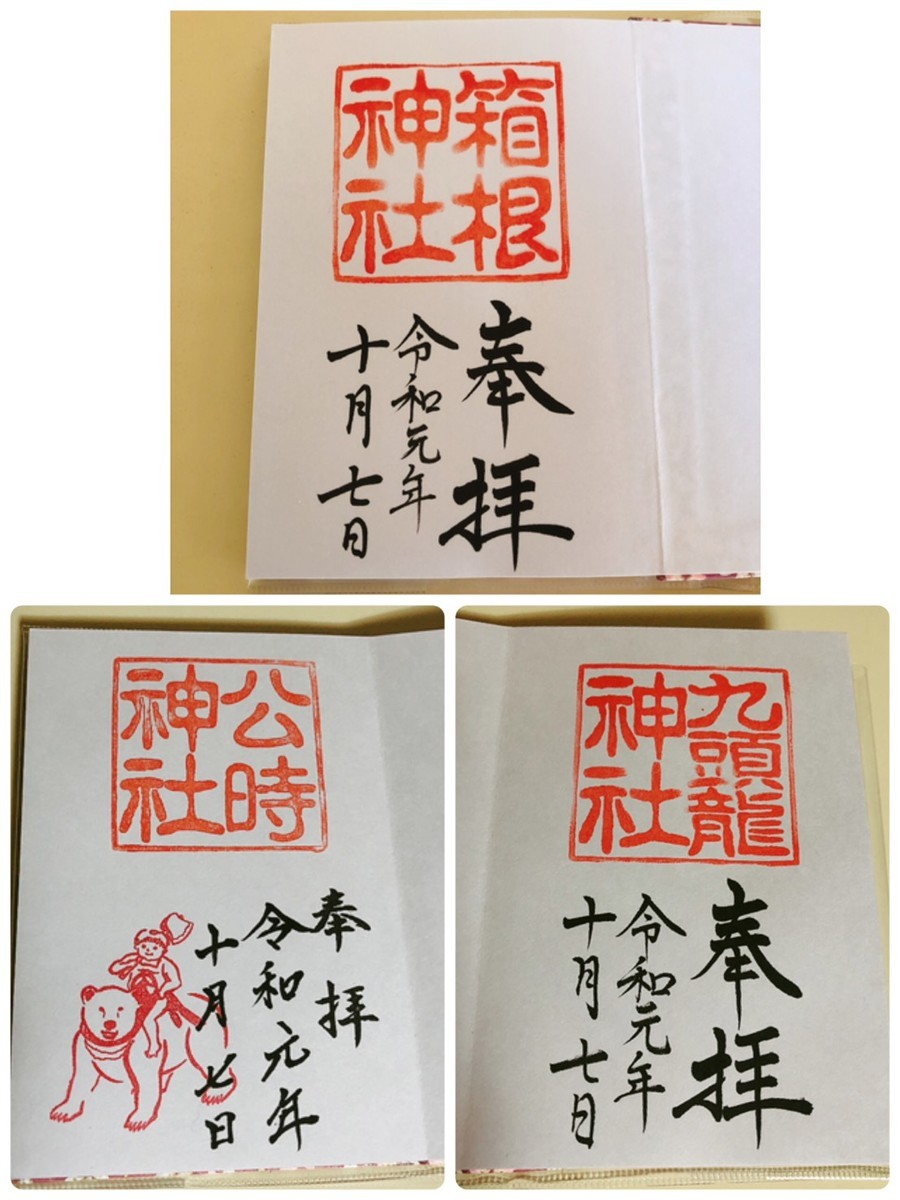 箱根
神社
奉拝
令和元年
十月七日
公時
神社
奉拝
令和元年
十月七日
九頭龍
神社
奉拝
令和元年
十月七日